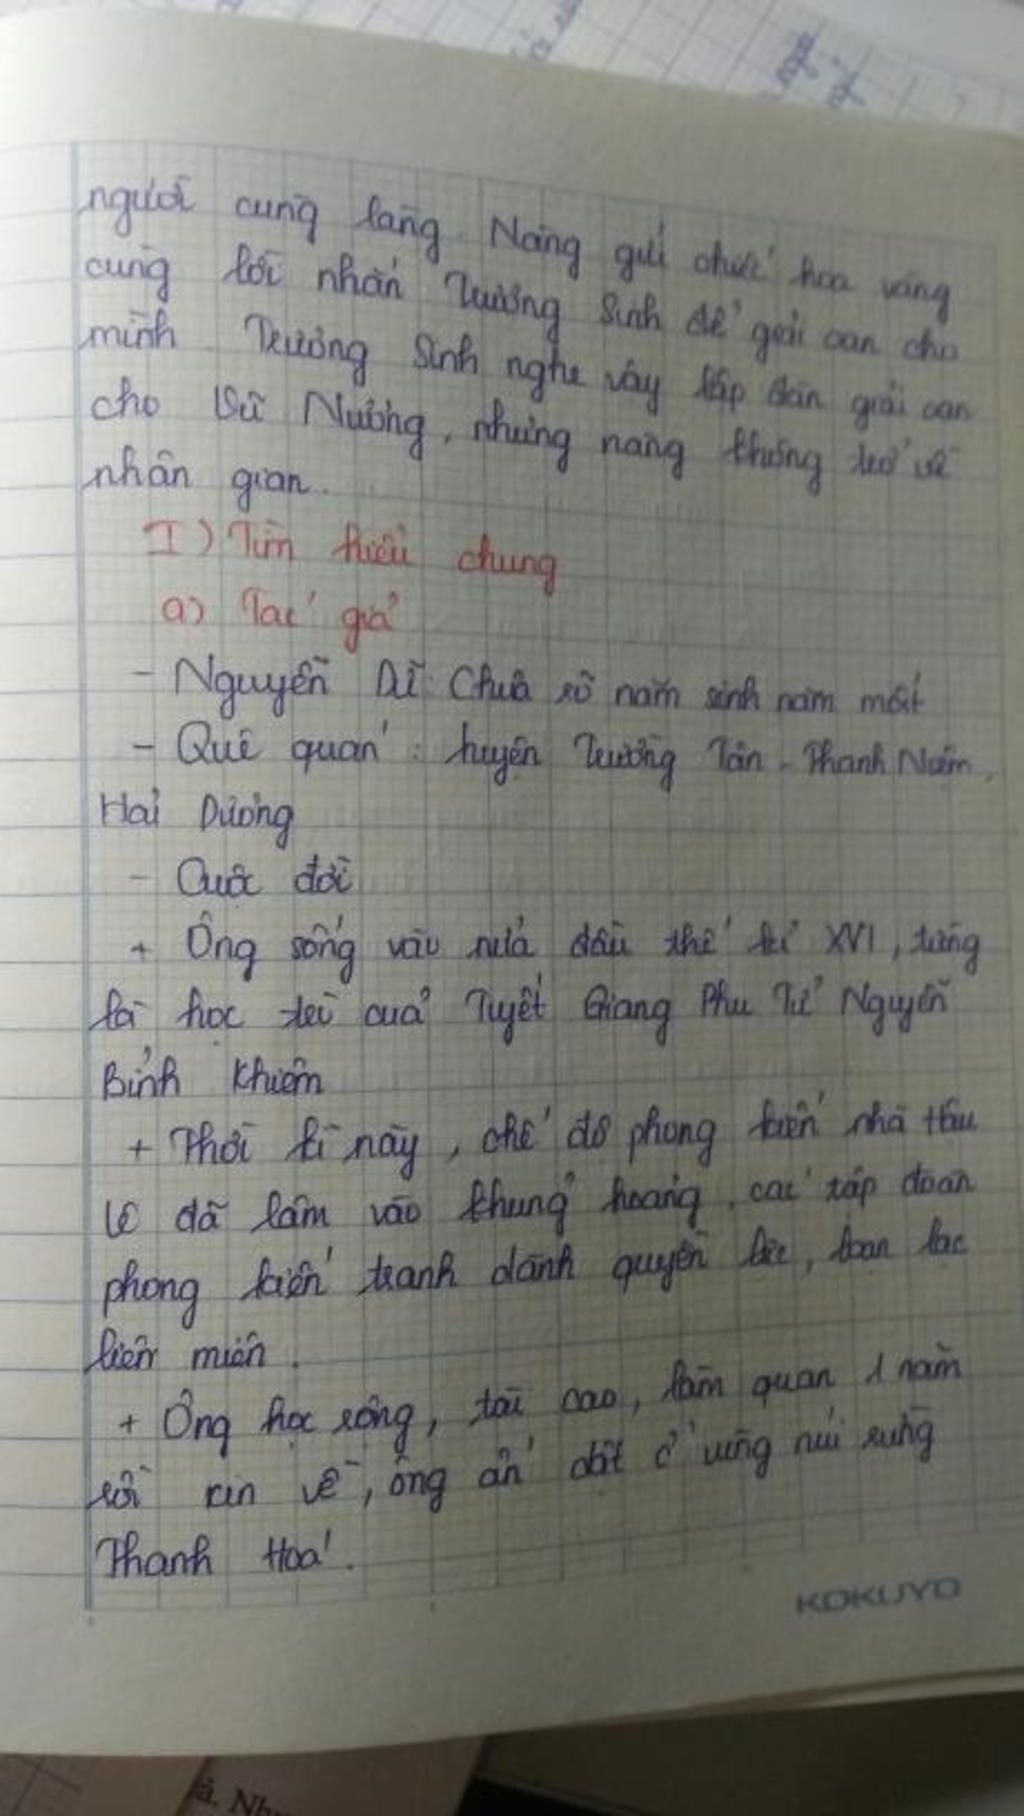 người cùng làng. Nàng gửi chiếc hoa vàng
cùng lời nhắn Trương Sinh để giải oan cho
mình. Trương Sinh nghe vậy lập đàn giải oan
cho Vũ Nương, nhưng nàng không trở về
nhân gian.
I) Tìm hiểu chung
a) Tác giả
- Nguyễn Dữ: Chưa rõ năm sinh năm mất
- Quê quán: huyện Trường Tân - Thanh Nam,
Hải Dương
- Cuộc đời
+ Ông sống vào nửa đầu thế kỉ XVI, từng
là học trò của Tuyết Giang Phu Tử Nguyễn
Bỉnh Khiêm
+ Thời kì này, chế độ phong kiến nhà Hậu
Lê đã lâm vào khủng hoảng, các tập đoàn
phong kiến tranh dành quyền lực, loạn lạc
liên miên.
+ Ông học rộng, tài cao, làm quan 1 năm
rồi xin về, ông ẩn dật ở vùng núi rừng
Thanh Hoá.
KOKUYO